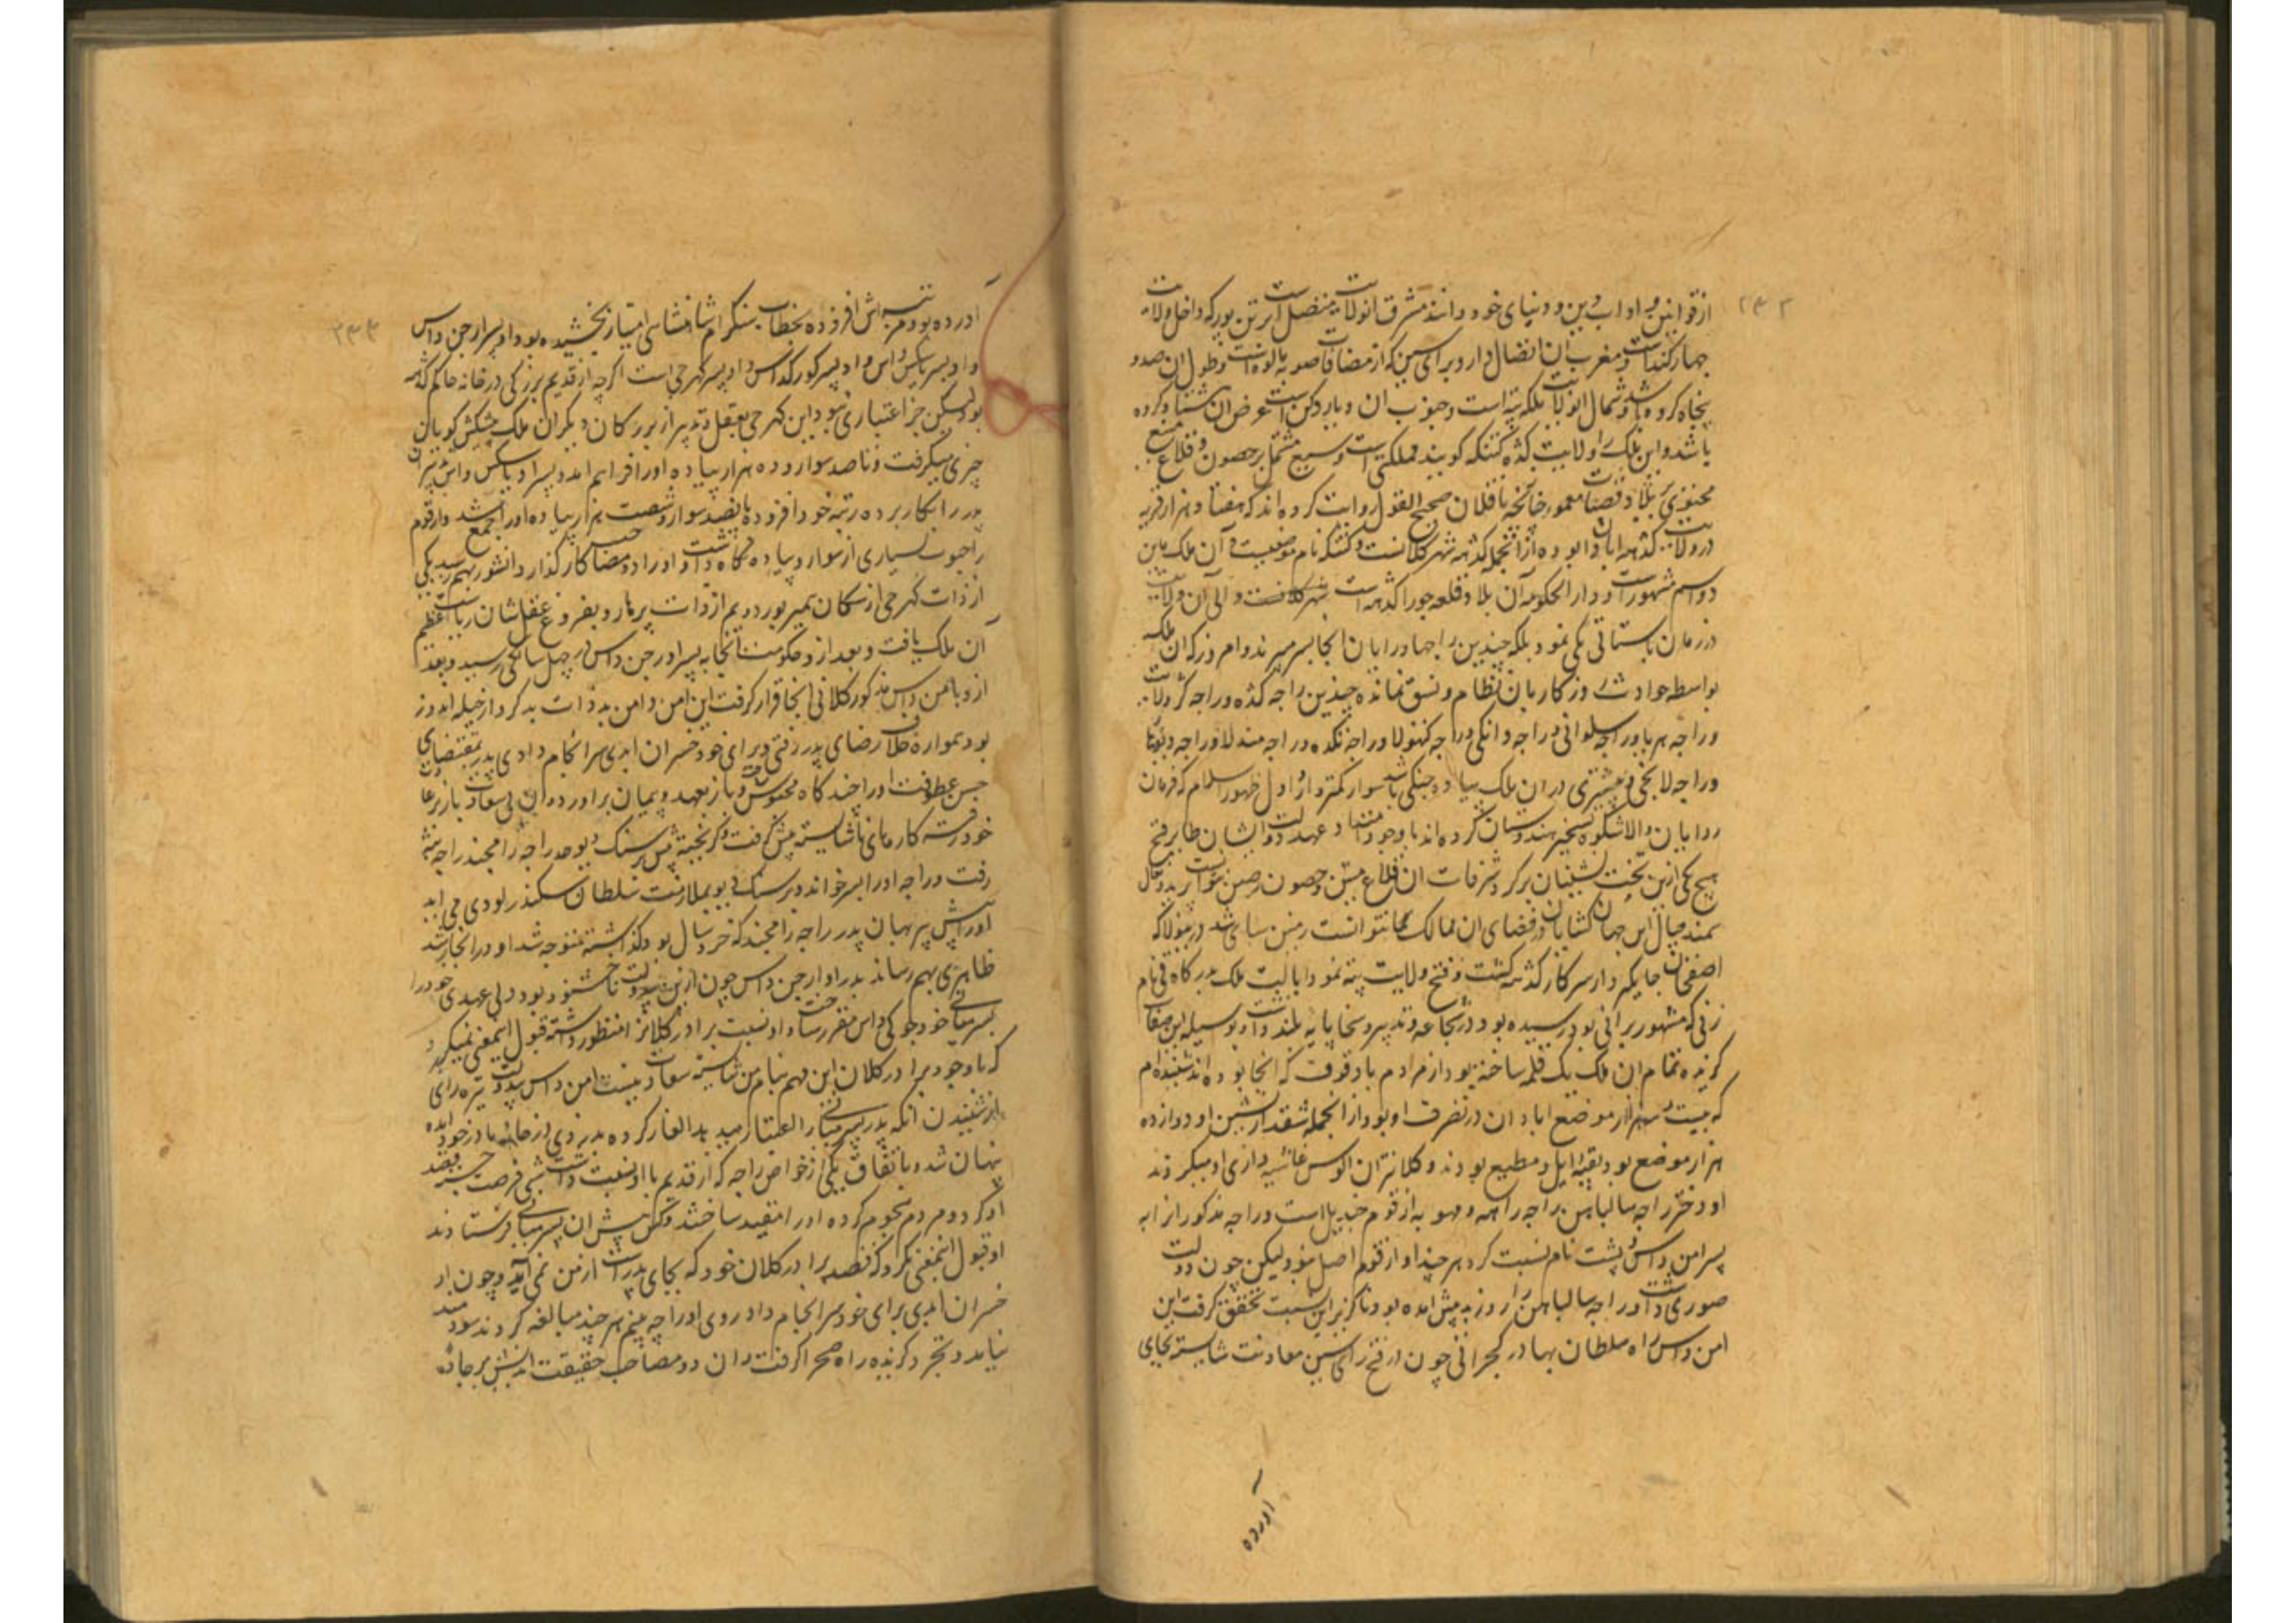 ۲۴۳
از قوانین و اداب دین و دنیای خود دانند مشرق انولایت متصل است برتن پور که داخل ولایت
جهارکند است و مغرب آن اتصال دارد برای سین که از مضافات صوبه مالوه است و طول ان صد و
پنجاه کروه باشد و شمال انولایت بلکه پته است و جنوب ان دیار دکن است عرض ان هشتاد کروه
باشد و این ملک را ولایت کده کتنکه کویند مملکتی است وسیع مشتمل بر حصون و قلاع منیع
محتوی بر بلاد و قصبات معمور چنانچه ناقلان صحیح القول روایت کرده اند که هفتاد هزار قریه
در ولایت کدهه ابادان بوده از انجمله کدهه شهر کلانست و کتنکه نام موضعیست و آن ملک باین
دو اسم مشهور است و دار الحکومه آن بلاد قلعه جوراکدهه است و والی آن ولایت
در زمان باستانی یکی نبود بلکه چندین راجها و رایان انجا بسر میبردند و امروز که ان ملک
بواسطه حوادث روزکار بان نظام و نسق نمانده چندین راجه کده و راجه کرولایت
و راجه هریا و راجه سلوانی و راجه دانکی و راجه کتهولا و راجه نکده و راجه مندلا و راجه دیوتها
و راجه لانجی و بیشتری در ان ملک پیاده جنکی باشد سوار کمتر و از اول ظهور اسلام که فرمان
روایان والاشکوه تسخیر هندوستان کرده اند با وجود امتداد عهد دولت ایشان طایر فتح
هیچ یکی ازین تخت نشینان بر کرد شرفات ان قلاع متین و حصون رصین نتوانست پرید و نعال
سمند خیال این جهان کشایان در فضای ان ممالک نتوانست زمین سای شد درینولا که
اصفخان جایکیردار سرکار کدهه کشت و فتح ولایت پته نمود ایالت ملک درکاوتی نام
زنی که مشهور برانی بود رسیده بود و در شجاعه و تدبیر و سخا پایه بلند داشت و بوسیله این صفات
کزیده تمام ان ملک یک قلم ساخته بود از مردم با وقوف که انجا بوده اند شنیده ام
که بیست و سه هزار موضع ابادان در تصرف او بود از انجمله شقدار نشین او دوازده
هزار موضع بود بقیه ایل و مطیع بودند و کلانتران الوس غاشیه داری او میکردند
او دختر راجه سالباهن راجه راتهه و مهوبه از قوم چندیل است و راجه مذکور انرا به
پسر امن داس دلپت نام نسبت کرد هر چند او از قوم اصل نبود لیکن چون دولت
صوری داشت و راجه سالباهن را روز بد پیش امده بود ناکزیر این نسبت تحقق کرفت این
امن داس را سلطان بهادر کجراتی چون در فتح رای سین معاونت شایسته بجای
آورده
۲۴۴
آورده بود مرتبه اش افزوده بخطاب سنکرام شاه امتیاز بخشیده بود او پسر ارجن داس
و او پسر سنکین داس و او پسر کورکداس و او پسر کهرجی است اکرچه از قدیم بزرکی در خانه حاکم کدهه
بود لیکن جز اعتباری نبود این کهرجی بعقل و تدبیر از بزرکان دیکر ان ملک پیشکش کویان
چیزی میکرفت و تا صد سوار و ده هزار پیاده او را فراهم امد و پسر او سنکین داس تدبیرات
پدر را بکار برده رتبه خود افزوده پانصد سوار و شصت هزار پیاده او را جمع شد و از قوم
راجپوت بسیاری از سوار و پیاده نکاه داشت و او را دو مصاحب کارکذار دانشور بهم رسید یکی
از ذات کهرجی از سکان همیرپور دویم از ذات پرمار و بفروغ عقل شان ریاست عظیم
آن ملک یافت و بعد ازو حکومت انجا به پسر او ارجن داس در چهل سالکی رسید و بعد
ازو بامن داس مذکور کلانی انجا قرار کرفت این امن دامن بدذات بدکردار حیله اندوز
بود همواره خلاف رضای پدر رفتی و برای خود خسران ابدی سرانجام دادی پدر بمقتضای
حسن عطوفت او را چند کاه محبوس داشت و باز بعهد و پیمان براورده ان بی سعادت باز بر عادت
خود رفته کارهای ناشایسته پیش کرفت و کریخته پیش برسنک دیو جد راجه رامچند راجه پته
رفت و راجه او را پسر خواند و برسنک دیو بملازمت سلطان سکندر لودی می امد
او را پیش پیربهان پدر راجه رامچند که خردسال بود کذاشته متوجه شد او در انجا رشد
ظاهری بهم رسانده پدر او ارجن داس چون ازین بیدولت ناخشنود بود ولی عهدی خود را
بپسر میانی خود جوکی داس مقرر ساخت و او نسبت برادر کلانرا منظور داشته قبول اینمعنی نمیکرد
که با وجود برادر کلان این مهم بنام من شایسته سعادت نیست امن داس بیدولت تیره رای
از شنیدن انکه پدر پسر میانی را اعتبار میدهد الغار کرده بدزدی در خانه مادر خود امده
پنهان شد و باتفاق یکی از خواص راجه که از قدیم با او نسبت داشت شبی فرصت جسته قصد
او کرد و مردم هجوم کرده او را مقید ساختند و کس پیش ان پسر میانی فرستادند
او قبول اینمعنی نکرد که قصد برادر کلان خود که بجای پدر است از من نمی آید و چون او
خسران ابدی برای خود سرانجام داد روی او را چه بینم هر چند مبالغه کردند سودمند
نیامد و تجرد کزیده راه صحرا کرفت و ان دو مصاحب حقیقت اندیش بر جاده